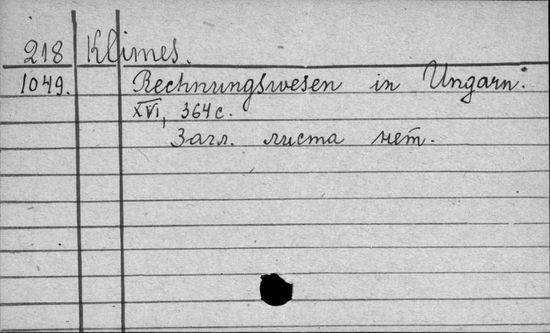 218 Klimes.
1049. Rechnungswesen in Ungarn.
XVI, 364 с.
Загл. листа нет.